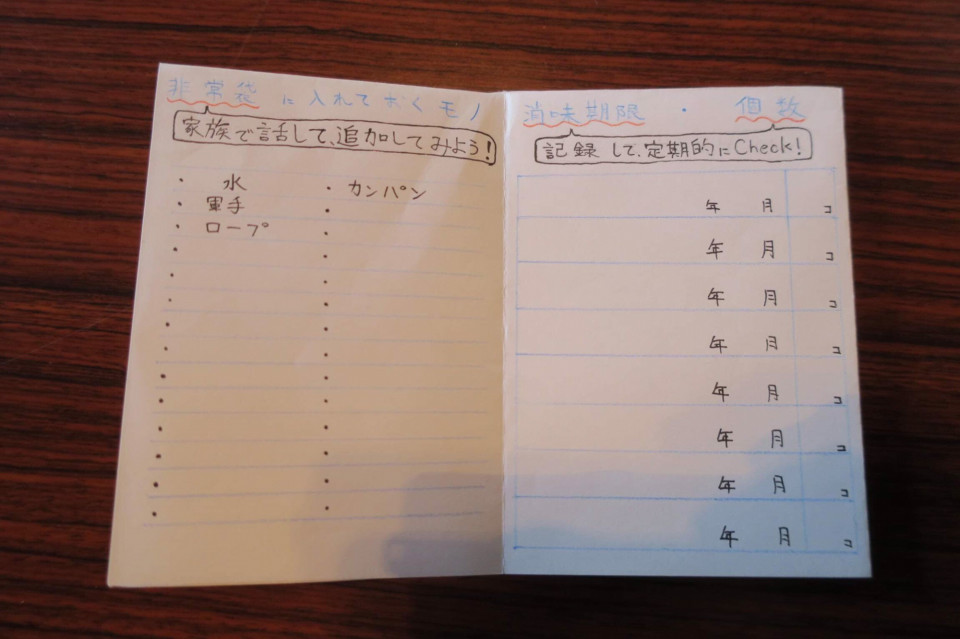 非常袋に入れておくモノ
家族で話して、追加してみよう!
・水
・軍手
・ロープ
・カンパン
消味期限・個数
記録して、定期的にCheck!
年 月 コ
年 月 コ
年 月 コ
年 月 コ
年 月 コ
年 月 コ
年 月 コ
年 月 コ